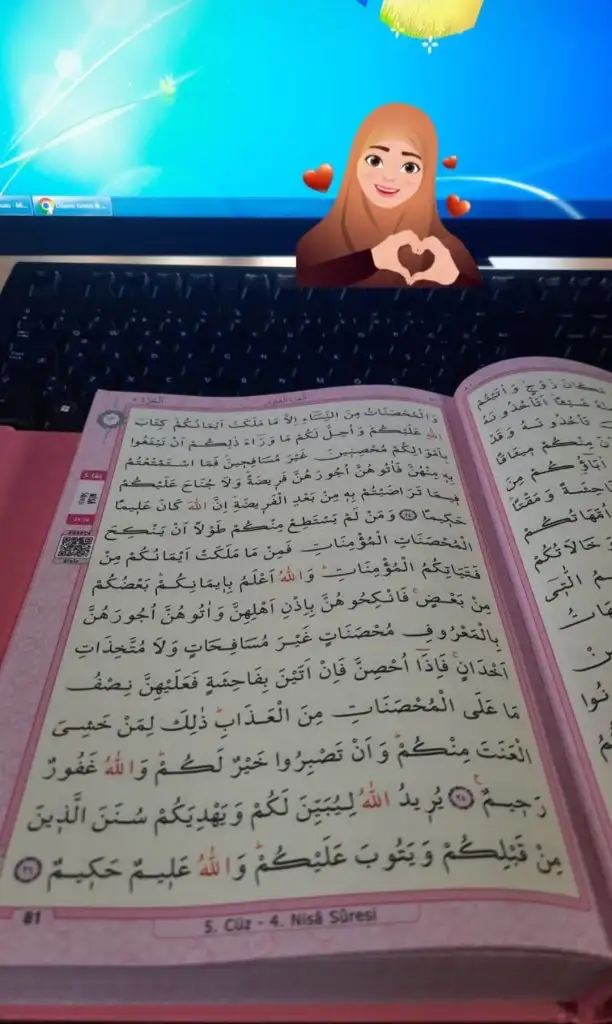 وَالْمُحْصَنَاتُ مِنَ النِّسَٓاءِ اِلَّا مَا مَلَكَتْ اَيْمَانُكُمْ كِتَابَ
اللّٰهِ عَلَيْكُمْ وَاُحِلَّ لَكُمْ مَا وَرَٓاءَ ذٰلِكُمْ اَنْ تَبْتَغُوا
بِاَمْوَالِكُمْ مُحْصِنٖينَ غَيْرَ مُسَافِحٖينَ فَمَا اسْتَمْتَعْتُمْ
بِهٖ مِنْهُنَّ فَاٰتُوهُنَّ اُجُورَهُنَّ فَرٖيضَةً وَلَا جُنَاحَ عَلَيْكُمْ
فٖيمَا تَرَاضَيْتُمْ بِهٖ مِنْ بَعْدِ الْفَرٖيضَةِ اِنَّ اللّٰهَ كَانَ عَلٖيمًا
حَكٖيمًا ﴿٢٤﴾ وَمَنْ لَمْ يَسْتَطِعْ مِنْكُمْ طَوْلًا اَنْ يَنْكِحَ
الْمُحْصَنَاتِ الْمُؤْمِنَاتِ فَمِنْ مَا مَلَكَتْ اَيْمَانُكُمْ مِنْ
فَتَيَاتِكُمُ الْمُؤْمِنَاتِ وَاللّٰهُ اَعْلَمُ بِاٖيمَانِكُمْ بَعْضُكُمْ
مِنْ بَعْضٍ فَانْكِحُوهُنَّ بِاِذْنِ اَهْلِهِنَّ وَاٰتُوهُنَّ اُجُورَهُنَّ
بِالْمَعْرُوفِ مُحْصَنَاتٍ غَيْرَ مُسَافِحَاتٍ وَلَا مُتَّخِذَاتِ
اَخْدَانٍ فَاِذَٓا اُحْصِنَّ فَاِنْ اَتَيْنَ بِفَاحِشَةٍ فَعَلَيْهِنَّ نِصْفُ
مَا عَلَى الْمُحْصَنَاتِ مِنَ الْعَذَابِ ذٰلِكَ لِمَنْ خَشِىَ
الْعَنَتَ مِنْكُمْ وَاَنْ تَصْبِرُوا خَيْرٌ لَكُمْ وَاللّٰهُ غَفُورٌ
رَحٖيمٌ ﴿٢٥﴾ يُرٖيدُ اللّٰهُ لِيُبَيِّنَ لَكُمْ وَيَهْدِيَكُمْ سُنَنَ الَّذٖينَ
مِنْ قَبْلِكُمْ وَيَتُوبَ عَلَيْكُمْ وَاللّٰهُ عَلٖيمٌ حَكٖيمٌ ﴿٢٦﴾
81
5. Cüz - 4. Nisâ Sûresi